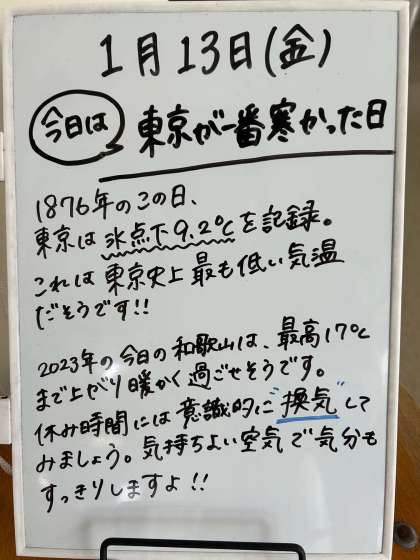 1月13日(金)
今日は 東京が一番寒かった日
1876年のこの日、
東京は氷点下9.2℃を記録。
これは東京史上最も低い気温
だそうです!!
2023年の今日の和歌山は、最高17℃
まで上がり暖かく過ごせそうです。
休み時間には意識的に"換気"して
みましょう。気持ちよい空気で気分も
すっきりしますよ!!